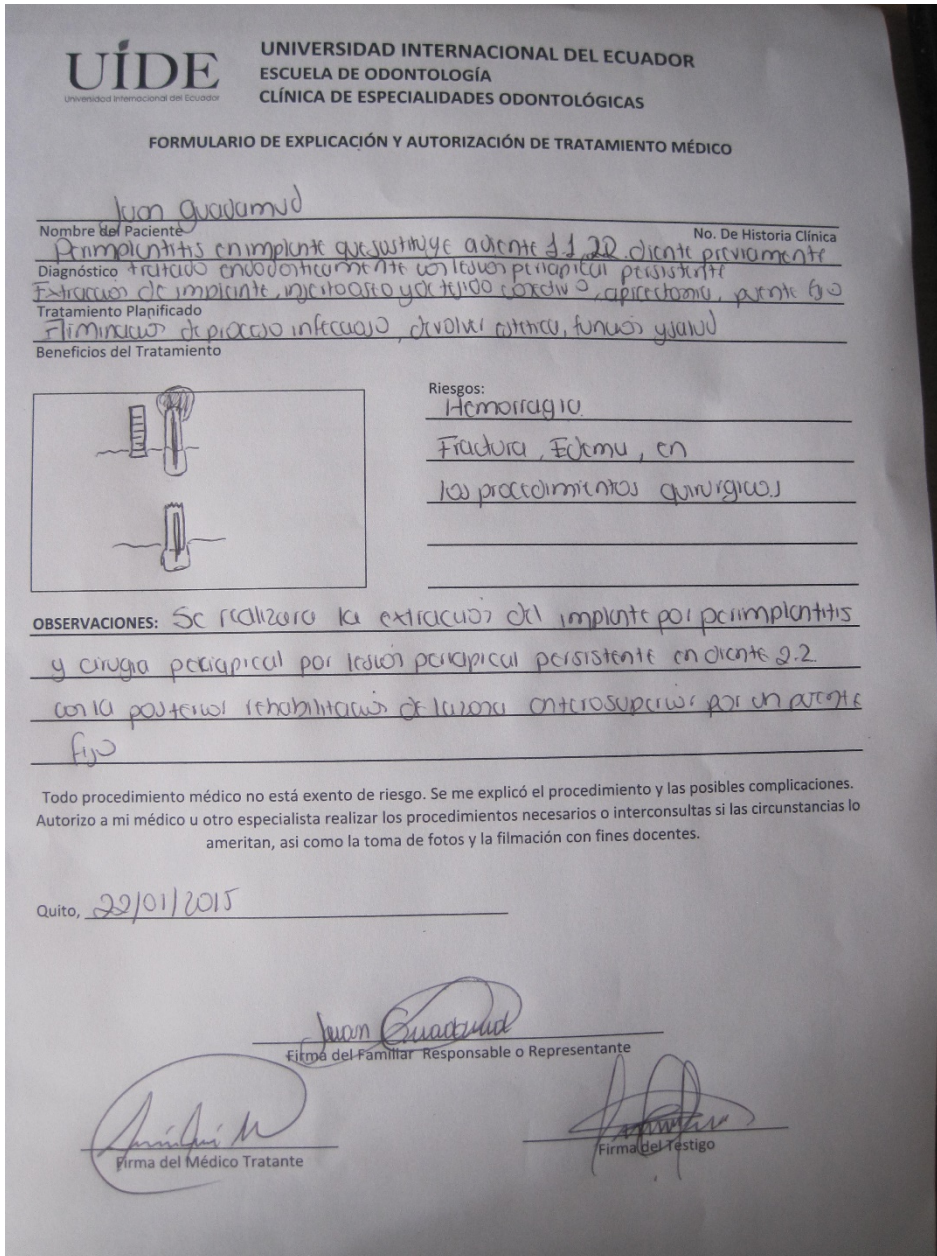 UÍDE
Universidad Internacional del Ecuador
UNIVERSIDAD INTERNACIONAL DEL ECUADOR
ESCUELA DE ODONTOLOGÍA
CLÍNICA DE ESPECIALIDADES ODONTOLÓGICAS
FORMULARIO DE EXPLICACIÓN Y AUTORIZACIÓN DE TRATAMIENTO MÉDICO
Juan Guadamud
Nombre del Paciente No. De Historia Clínica
Periimplantitis en implante que sustituye a diente 1.1, 22 diente previamente
Diagnóstico tratado endodonticamente con lesion periapical persistente
Extraccion de implante, injerto oseo y de tejido conectivo, apicectomia, puente fijo
Tratamiento Planificado
Eliminacion de proceso infeccioso, devolver estetica, funcion y salud
Beneficios del Tratamiento
Riesgos:
Hemorragia.
Fractura, Edema, en
los procedimientos quirurgicos
OBSERVACIONES: Se realizara la extraccion del implante por perimplantitis
y cirugia periapical por lesion periapical persistente en diente 2.2.
con la posterior rehabilitacion de la zona anterosuperior por un puente
fijo
Todo procedimiento médico no está exento de riesgo. Se me explicó el procedimiento y las posibles complicaciones.
Autorizo a mi médico u otro especialista realizar los procedimientos necesarios o interconsultas si las circunstancias lo
ameritan, asi como la toma de fotos y la filmación con fines docentes.
Quito, 22/01/2015
Juan Guadamud
Firma del Familiar Responsable o Representante
Firma del Médico Tratante
Firma del Testigo